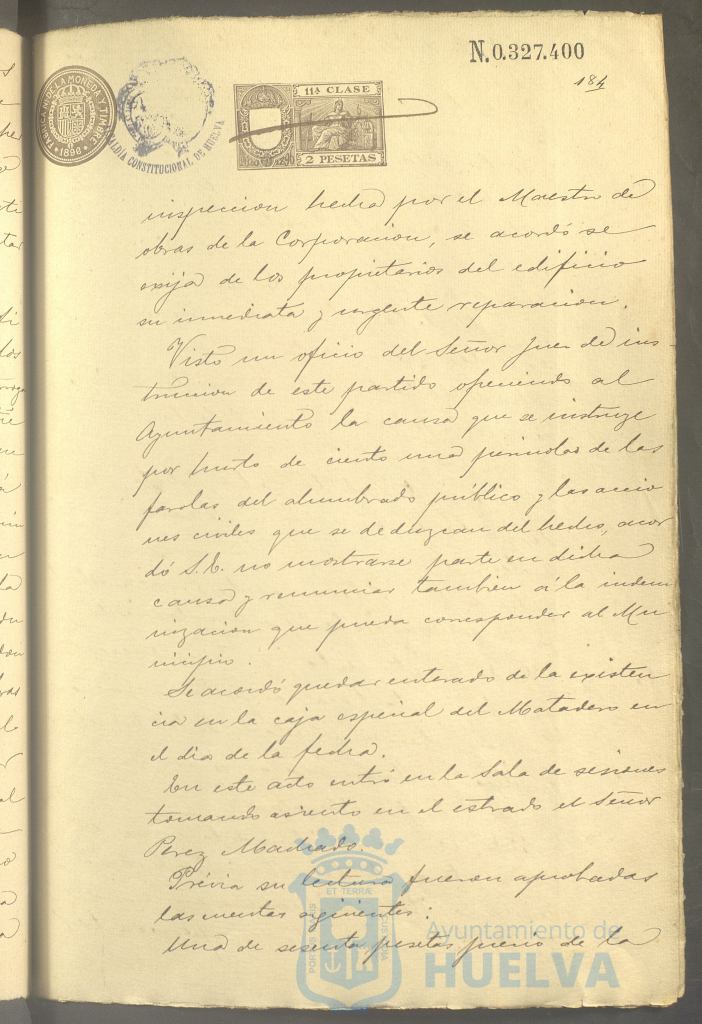 N. 0.327.400
184
FABRICA N. DE LA MONEDA Y TIMBRE
1896
ALCALDIA CONSTITUCIONAL DE HUELVA
11ª CLASE
2 PESETAS
inspeccion hecha por el Maestro de
obras de la Corporacion, se acordó se
exija de los propietarios del edificio
su inmediata y urgente reparacion.
Visto un oficio del Señor Juez de ins-
truccion de este partido ofreciendo al
Ayuntamiento la causa que se instruye
por hurto de ciento una de las
farolas del alumbrado público y las accio
nes civiles que se deduzcan del hecho, acor
dó S.E. no mostrarse parte en dicha
causa y renunciar tambien á la indem
nizacion que pueda corresponder al Mu
nicipio.
Se acordó quedar enterado de la existen
cia en la caja especial del Matadero en
el dia de la fecha.
En este acto entró en la Sala de sesiones
tomando asiento en el estrado el Señor
Perez Machado.
Prévia su lectura fueron aprobadas
las cuentas siguientes:
Una de sesenta pesetas precio de la
Ayuntamiento de
HUELVA